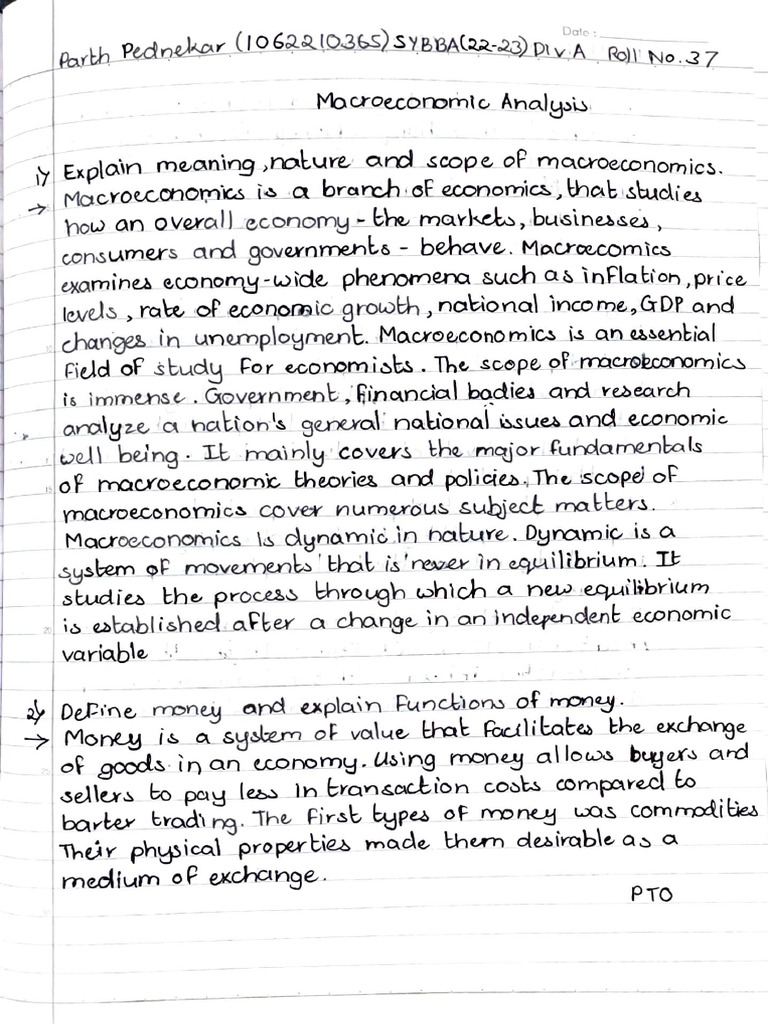 Date:
Parth Pednekar (1062210365) SYBBA(22-23) Div A Roll No. 37
Macroeconomic Analysis
1) Explain meaning, nature and scope of macroeconomics.
→ Macroeconomics is a branch of economics, that studies
how an overall economy - the markets, businesses,
consumers and governments - behave. Macroecomics
examines economy-wide phenomena such as inflation, price
levels, rate of economic growth, national income, GDP and
changes in unemployment. Macroeconomics is an essential
field of study for economists. The scope of macroeconomics
is immense. Government, financial bodies and research
analyze a nation's general national issues and economic
well being. It mainly covers the major fundamentals
of macroeconomic theories and policies. The scope of
macroeconomics cover numerous subject matters.
Macroeconomics is dynamic in nature. Dynamic is a
system of movements that is never in equilibrium. It
studies the process through which a new equilibrium
is established after a change in an independent economic
variable
2) Define money and explain functions of money.
→ Money is a system of value that facilitates the exchange
of goods in an economy. Using money allows buyers and
sellers to pay less in transaction costs compared to
barter trading. The first types of money was commodities
Their physical properties made them desirable as a
medium of exchange.
PTO